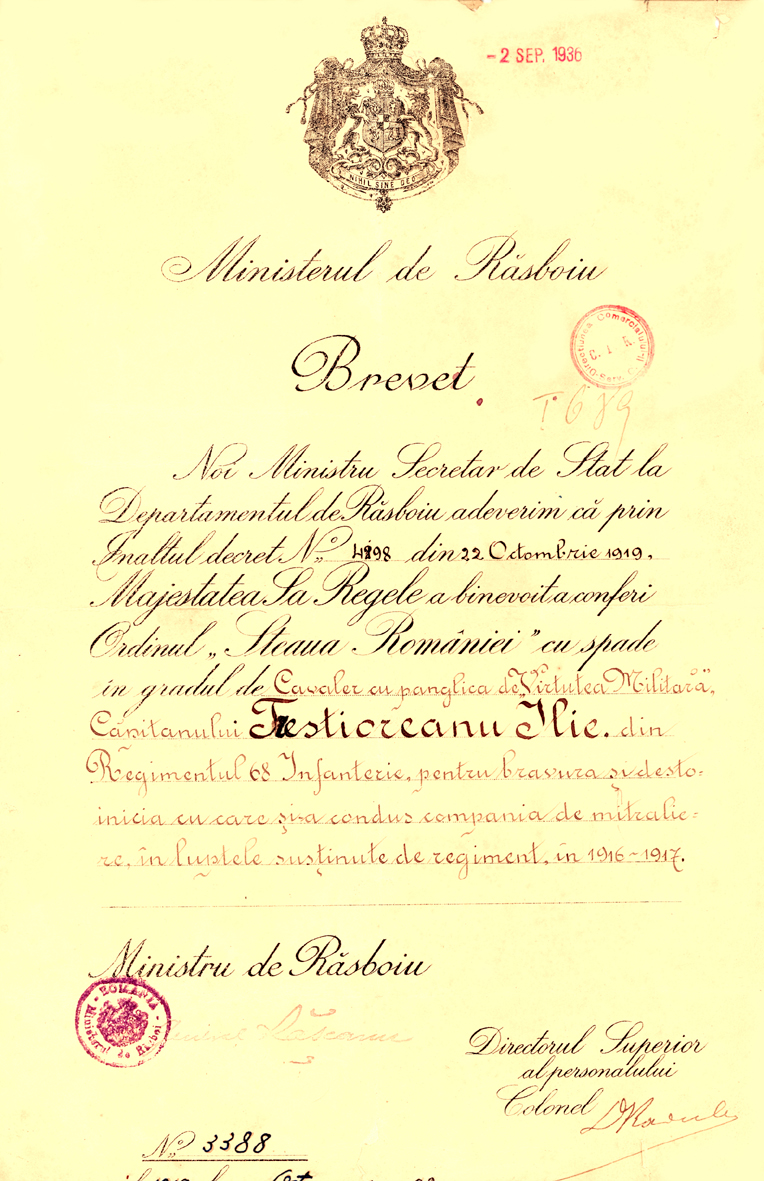 - 2 SEP. 1936
NIHIL SINE DEO
Ministerul de Răsboiu
Brevet
Noi Ministru Secretar de Stat la
Departamentul de Răsboiu adeverim că prin
Inaltul decret No. 4898 din 22 Octombrie 1919,
Majestatea Sa Regele a binevoit a conferi
Ordinul „Steaua României” cu spade
in gradul de Cavaler cu panglica de „Virtutea Militară”,
Căpitanului Testioreanu Ilie. din
Regimentul 68 Infanterie, pentru bravura și desto-
inicia cu care și-a condus compania de mitralie-
re, în luptele susținute de regiment, în 1916-1917.
Ministru de Răsboiu
ROMANIA
Directorul Superior
al personalului
Colonel
No. 3388